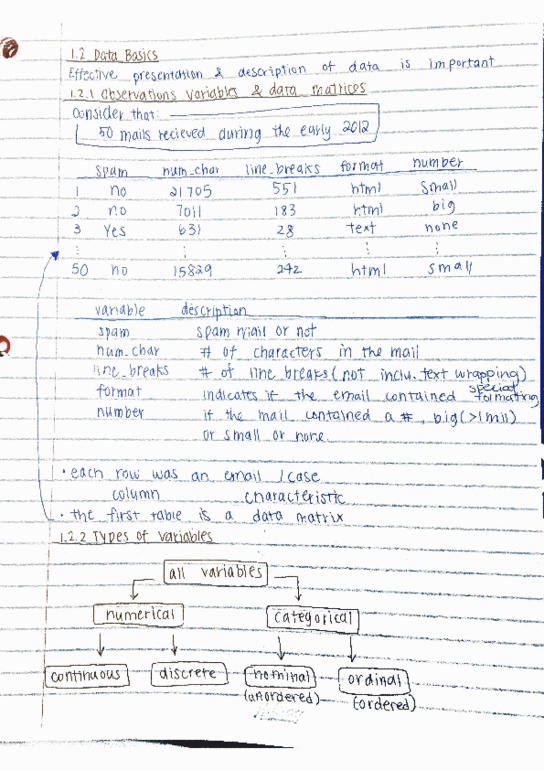 1.2 Data Basics
Effective presentation & description of data is important
1.2.1 Observations variables & data matrices
Consider that:
50 mails recieved during the early 2012
spam num_char line_breaks format number
1 no 21705 551 html small
2 no 7011 183 html big
3 Yes 631 28 text none
⋮ ⋮ ⋮ ⋮ ⋮
50 no 15829 242 html small
variable description
spam spam mail or not
num_char # of characters in the mail
line_breaks # of line breaks (not inclu. text wrapping)
format indicates if the email contained special formating
number if the mail contained a #, big (>1mil)
or small or none
• each row was an email / case
column characteristic
• the first table is a data matrix
1.2.2 Types of variables
all variables
numerical categorical
continuous discrete nominal ordinal
(unordered) (ordered)